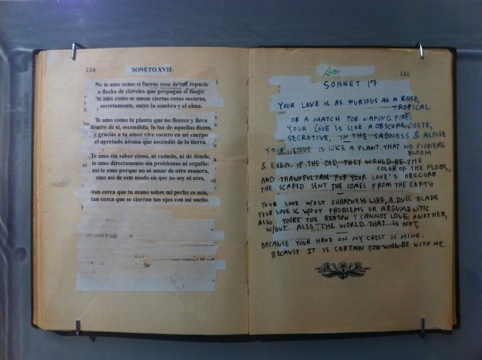 154 SONETO XVII
No te amo como si fueras rosa de sal, topacio
o flecha de claveles que propagan el fuego:
te amo como se aman ciertas cosas oscuras,
secretamente, entre la sombra y el alma.
Te amo como la planta que no florece y lleva
dentro de sí, escondida, la luz de aquellas flores,
y gracias a tu amor vive oscuro en mi cuerpo
el apretado aroma que ascendió de la tierra.
Te amo sin saber cómo, ni cuándo, ni de dónde,
te amo directamente sin problemas ni orgullo:
así te amo porque no sé amar de otra manera,
sino así de este modo en que no soy ni eres,
tan cerca que tu mano sobre mi pecho es mía,
tan cerca que se cierran tus ojos con mi sueño.
155
SONNET 17
YOUR LOVE IS AS FURIOUS AS A ROSE,
TROPICAL.
OR A MATCH FOR MAKING FIRE,
YOUR LOVE IS LIKE A OBSCURE
SECRETIVE, IN THE & ALONE
YOUR LOVE IS LIKE A PLANT THAT NO FLOWERS
BLOOM
& EVEN IF THE DID, THEY WOULD BE THE
COLOR OF THE FLOOR,
AND THANKFUL I AM FOR YOUR LOVE'S OBSCURE
THE SCAPED SENT THE COMES FROM THE EARTH
YOUR LOVE W/OUT SHARPNESS LIKE A DULL BLADE
YOUR LOVE IS W/OUT PROBLEMS OR ARGUMENTS
ALSO YOU'RE THE REASON I CANNOT LOVE ANOTHER,
W/OUT ALSO, THE WORLD THAT IS NOT,
BECAUSE YOUR HAND ON MY CHEST IS MINE.
BECAUSE IT IS CERTAIN YOU WILL BE WITH ME.